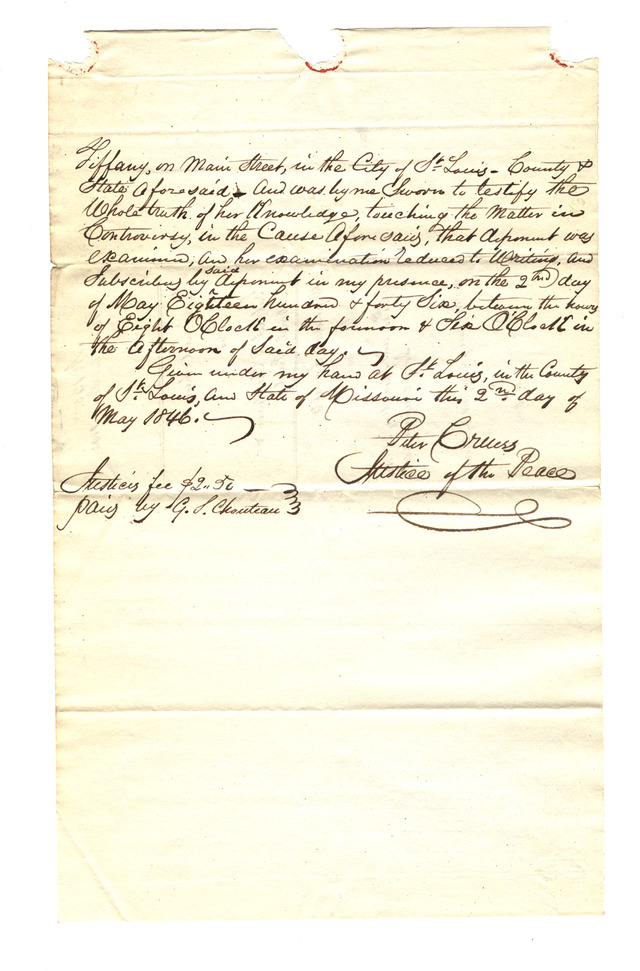 Tiffany, on Main Street, in the City of St. Louis - County &
State Aforesaid - And was by me Sworn to testify the
Whole truth of her Knowledge, touching the Matter in
Controversy, in the Cause Aforesaid, that deponent was
examined, and her examination reduced to Writing, and
Subscribed by said deponent in my presence, on the 2nd day
of May Eighteen hundred & forty Six, between the hours
of Eight O'Clock in the forenoon & Six O'Clock in
the Afternoon of Said day.
Given under my hand at St. Louis, in the County
of St. Louis, and State of Missouri this 2nd day of
May 1846.
Peter
Justice of the Peace
Justices fee $2.50
paid by G. S. Chouteau